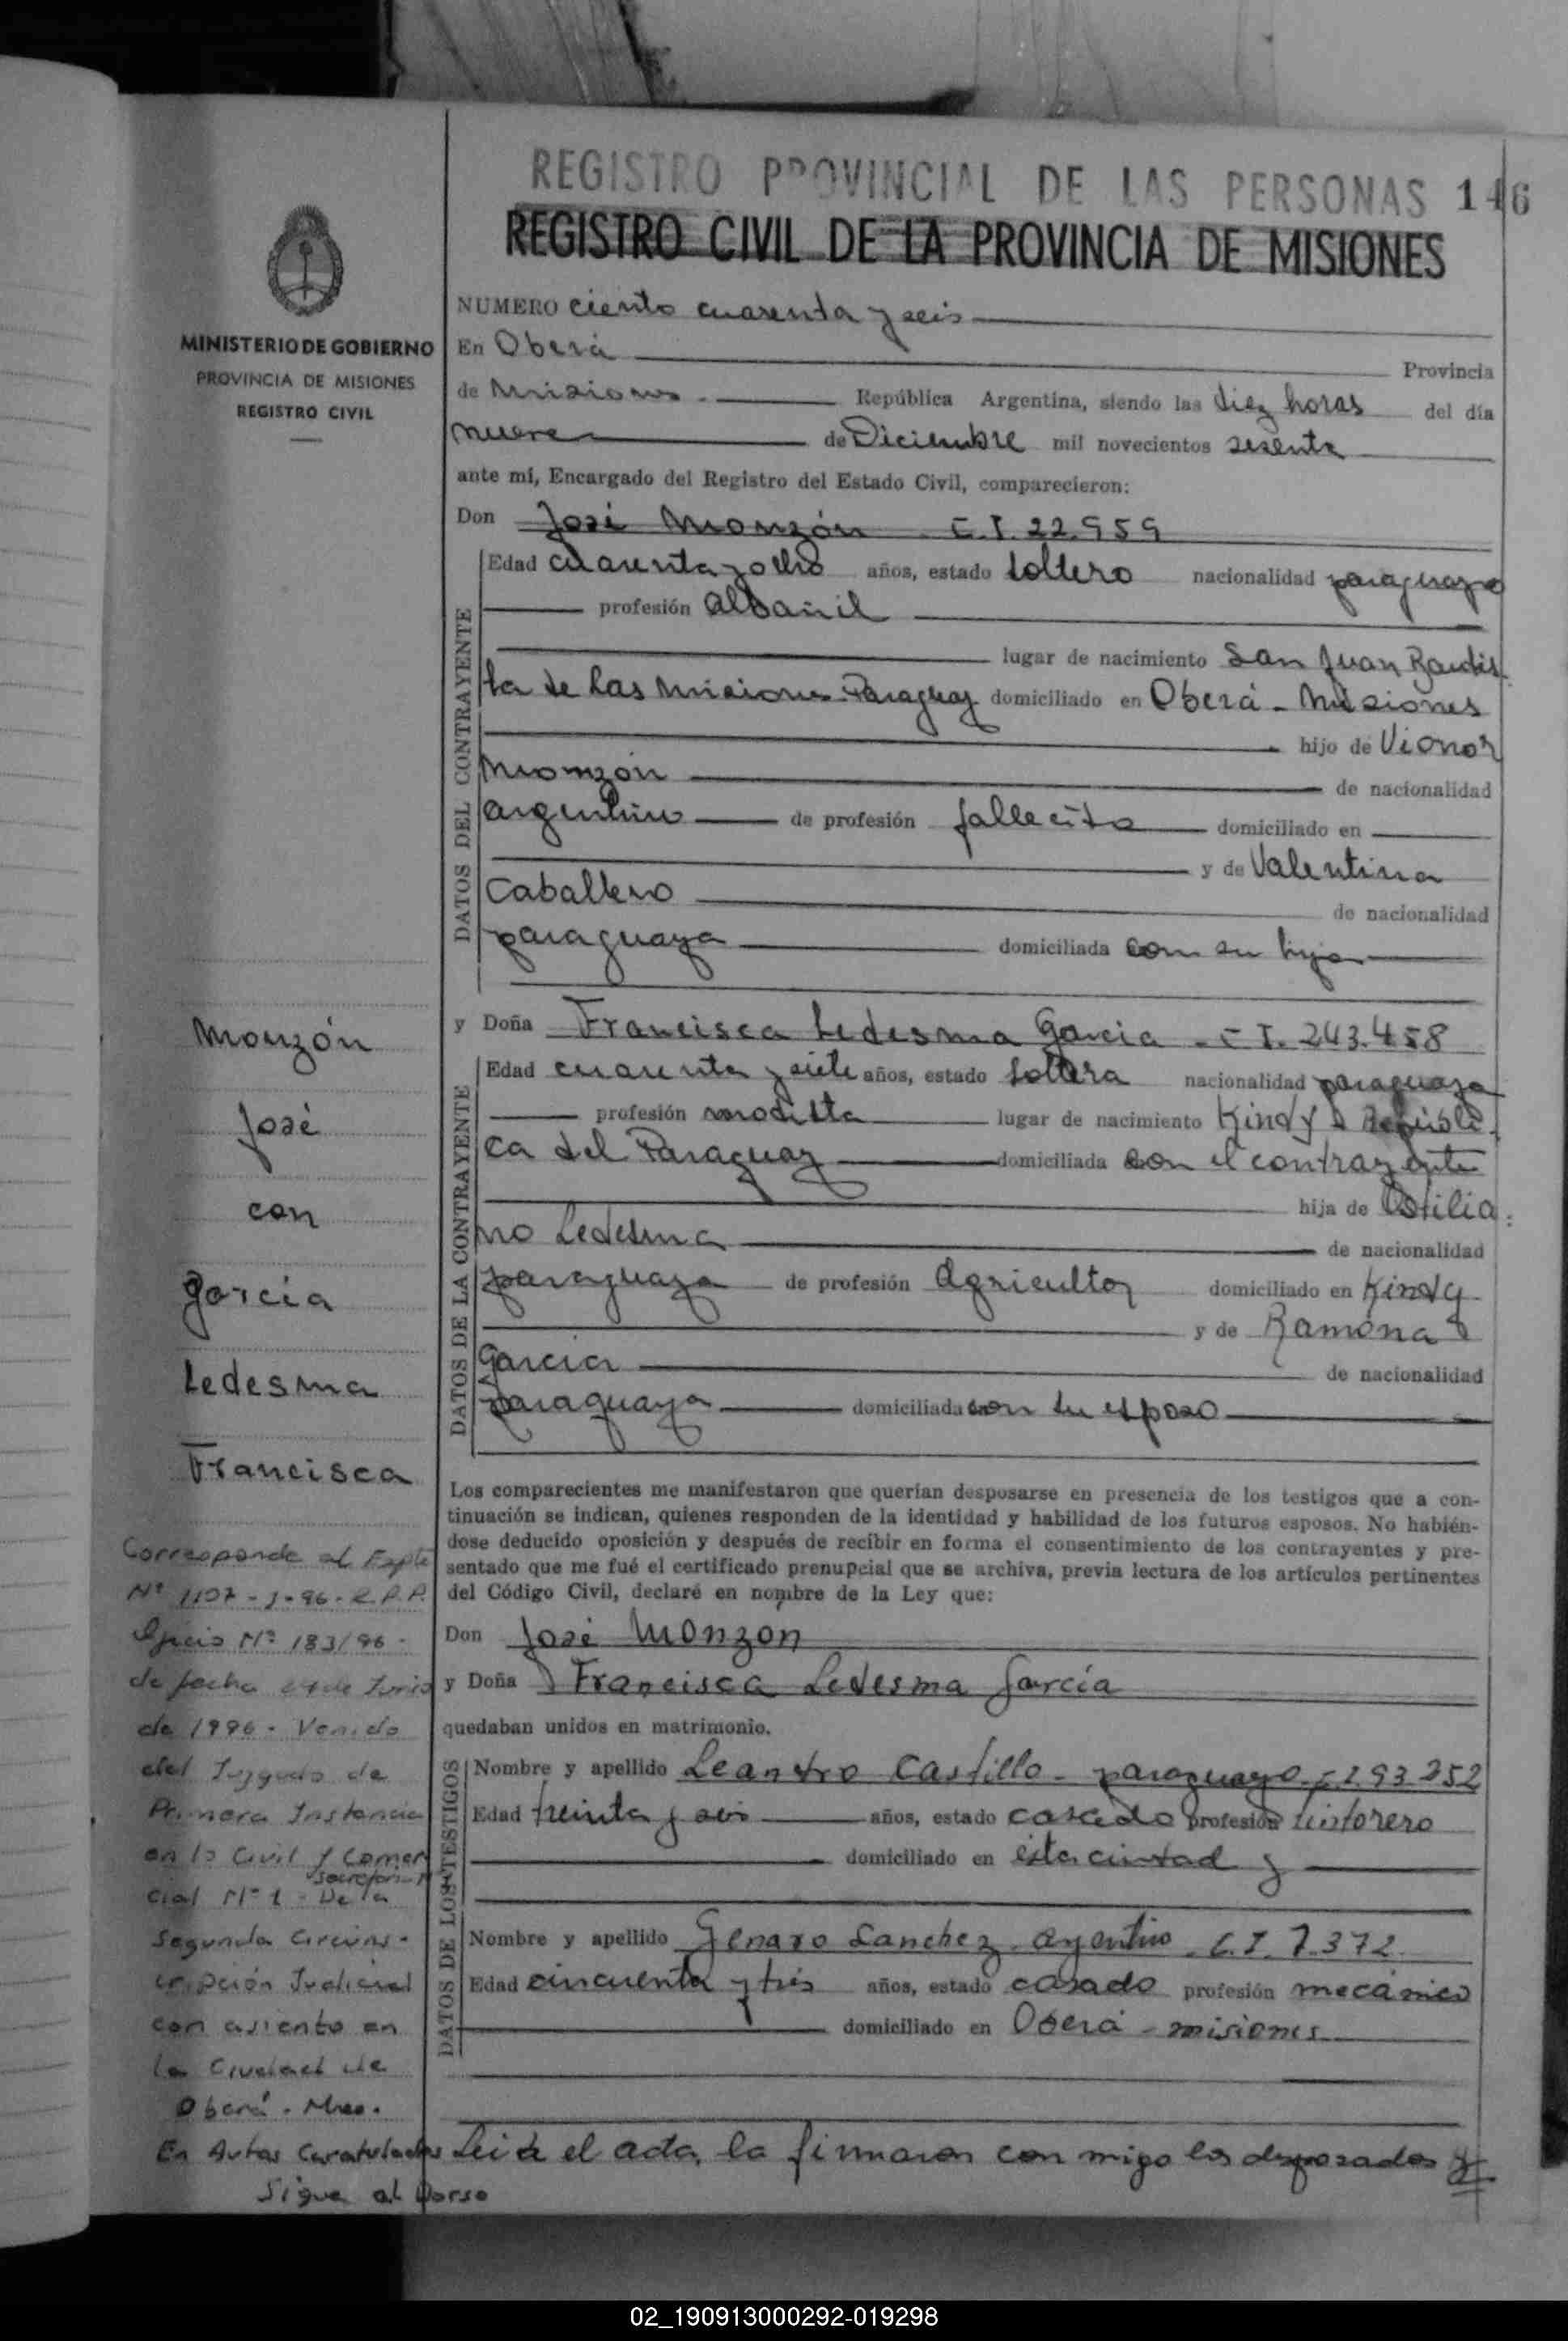 REGISTRO PROVINCIAL DE LAS PERSONAS 146
REGISTRO CIVIL DE LA PROVINCIA DE MISIONES
MINISTERIO DE GOBIERNO
PROVINCIA DE MISIONES
REGISTRO CIVIL
NUMERO ciento cuarenta y seis
En Oberá
Provincia
de Misiones. República Argentina, siendo las diez horas del día
nueve de Diciembre mil novecientos sesenta
ante mí, Encargado del Registro del Estado Civil, comparecieron:
Don José Monzón C.I. 22.959
DATOS DEL CONTRAYENTE
Edad cuarenta y ocho años, estado soltero nacionalidad paraguayo
profesión albañil
lugar de nacimiento San Juan Bautis-
ta de las Misiones Paraguay domiciliado en Oberá - Misiones
hijo de Vionor
Monzón de nacionalidad
argentino de profesión fallecido domiciliado en
y de Valentina
Caballero de nacionalidad
paraguaya domiciliada con su hijo
y Doña Francisca Ledesma Garcia - C I. 243.458
DATOS DE LA CONTRAYENTE
Edad cuarenta y siete años, estado soltera nacionalidad paraguaya
profesión modista lugar de nacimiento Kindy Repúbli-
ca del Paraguay domiciliada con el contrayente
hija de Ostilia-
no Ledesma de nacionalidad
paraguaya de profesión Agricultor domiciliado en Kindy
y de Ramóna
Garcia de nacionalidad
paraguaya domiciliada con su esposo
Los comparecientes me manifestaron que querían desposarse en presencia de los testigos que a con-
tinuación se indican, quienes responden de la identidad y habilidad de los futuros esposos. No habién-
dose deducido oposición y después de recibir en forma el consentimiento de los contrayentes y pre-
sentado que me fué el certificado prenupcial que se archiva, previa lectura de los artículos pertinentes
del Código Civil, declaré en nombre de la Ley que:
Don José Monzon
y Doña Francisca Ledesma García
quedaban unidos en matrimonio.
DATOS DE LOS TESTIGOS
Nombre y apellido Leandro Castillo - paraguayo C.I. 93.252
Edad treinta y seis años, estado casado profesión tintorero
domiciliado en esta ciudad y
Nombre y apellido Genaro Sanchez argentino C.I. 7.372
Edad cincuenta y tres años, estado casado profesión mecánico
domiciliado en Oberá - misiones
Leida el acta, la firmaron con migo los desposados y
Monzón
José
con
García
Ledesma
Francisca
Corresponde al Expte
Nº 1107-J-96-R.P.P.
Oficio Nº 183/96-
de fecha 04 de Junio
de 1996 - Venido
del Juzgado de
Primera Instancia
en lo Civil y Comer
cial Nº 1 - De la
Segunda Circuns-
cripción Judicial
con asiento en
la Ciudad de
Oberá - Mnes.
En Autos Caratulados
Sigue al Dorso
02_190913000292-019298